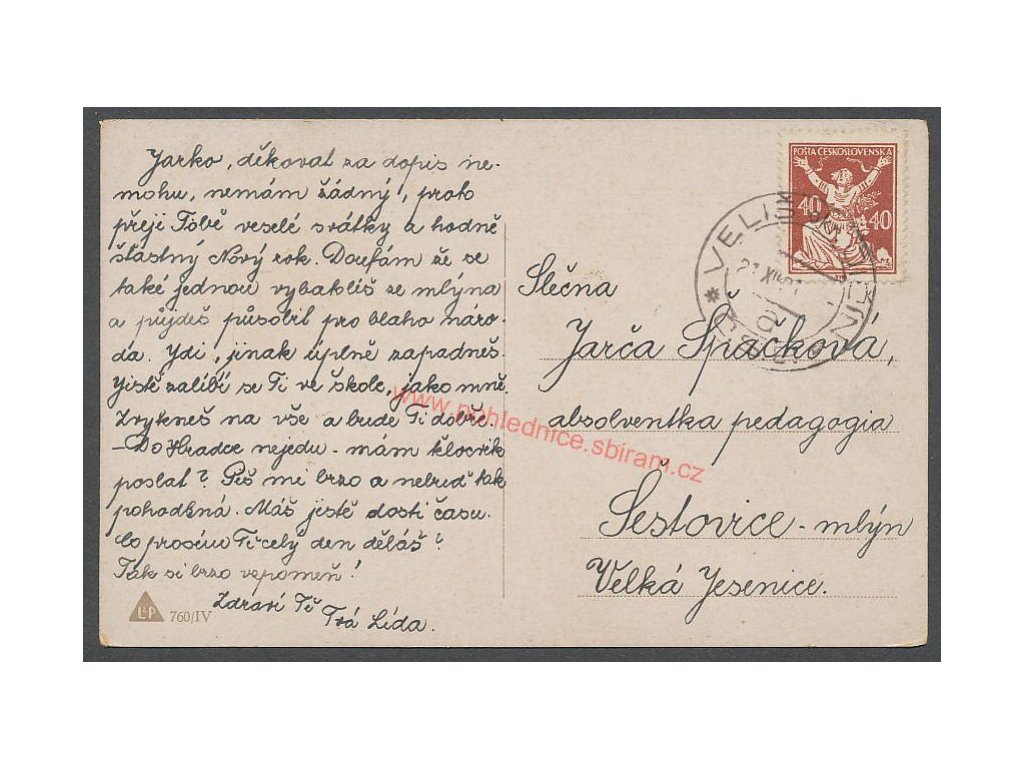 Jarko, děkovat za dopis ne-
mohu, nemám žádný, proto
přeji Tobě veselé svátky a hodně
šťastný Nový rok. Doufám že se
také jednou vybatolíš ze mlýna
a půjdeš působit pro blaho náro-
da. Jdi, jinak úplně zapadneš.
Jistě zalíbí se Ti ve škole, jako mně.
Zvykneš na vše a bude Ti dobře.
- Do Hradce nejedu - mám
poslat? Piš mi brzo a nebuď tak
pohodlná. Máš jistě dosti času.
Co prosím Tě celý den děláš?
Tak si brzo vzpomeň!
Zdraví Tě
Tvá Lída.
L&P 760/IV
POŠTA ČESKOSLOVENSKÁ
40 40
Slečna
Jarča Špačková,
absolventka pedagogia
Šestovice - mlýn
Velká Jesenice.
www.pohlednice.sbiram.cz